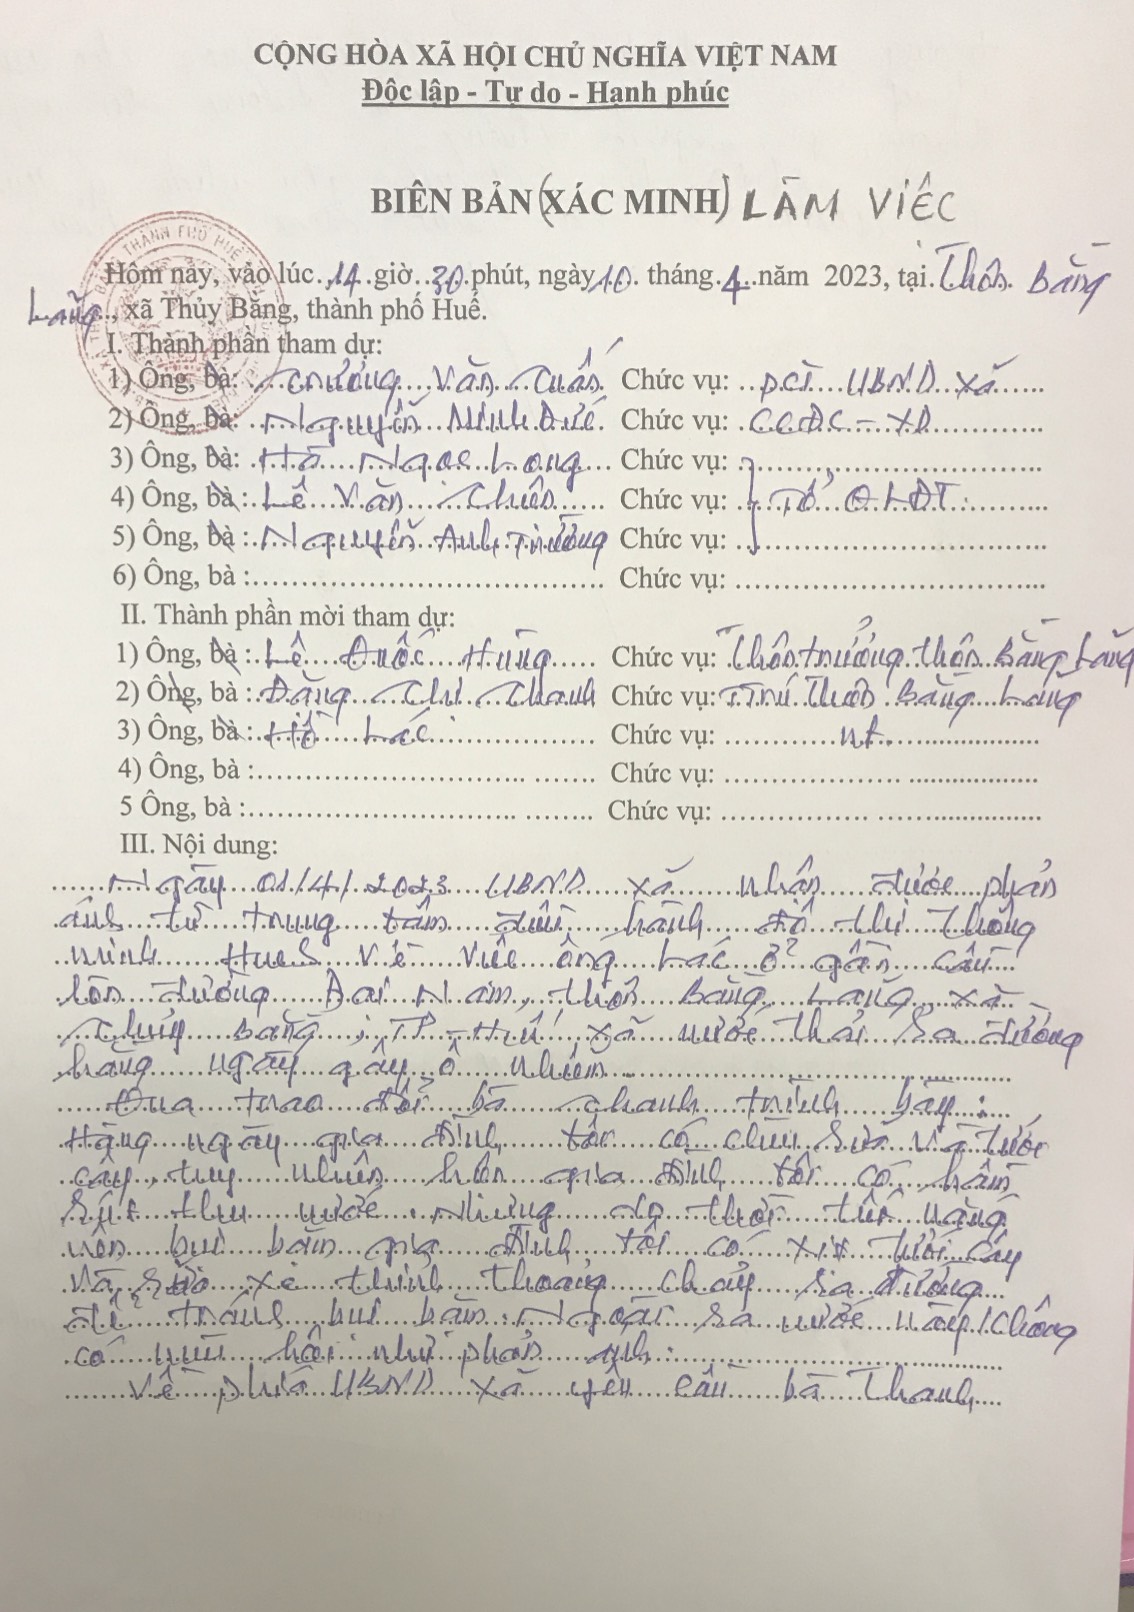 CỘNG HÒA XÃ HỘI CHỦ NGHĨA VIỆT NAM
Độc lập - Tự do - Hạnh phúc
BIÊN BẢN (XÁC MINH) LÀM VIỆC
Hôm nảy, vào lúc 14 giờ 30 phút, ngày 10 tháng 4 năm 2023, tại Thôn Bằng
Lãng, xã Thủy Bằng, thành phố Huế.
I. Thành phần tham dự:
1) Ông, bà: Trương Văn Tuấn Chức vụ: PCT UBND xã
2) Ông, bà: Nguyễn Minh Đức Chức vụ: CCĐC - XD
3) Ông, bà: Hà Ngọc Long Chức vụ:
4) Ông, bà : Lê Văn Chiến Chức vụ: Tổ QLĐT
5) Ông, bà : Nguyễn Anh Trường Chức vụ:
6) Ông, bà : Chức vụ:
II. Thành phần mời tham dự:
1) Ông, bà : Lê Quốc Hùng Chức vụ: Thôn trưởng thôn Bằng Lãng
2) Ông, bà : Đặng Thị Thanh Chức vụ: TTrú Thôn Bằng Lãng
3) Ông, bà : Hồ Lác Chức vụ: nt
4) Ông, bà : Chức vụ:
5 Ông, bà : Chức vụ:
III. Nội dung:
Ngày 01/4/2023 UBND xã nhận được phản
ánh từ trung tâm điều hành đô thị thông
minh HueS về việc ông Lác ở gần cầu
lớn đường Đại Nam, thôn Bằng Lãng, xã
Thủy Bằng, TP-Huế xả nước thải ra đường
hằng ngày gây ô nhiễm
Qua trao đổi bà Thanh trình bày:
Hàng ngày gia đình tôi có chùi rửa và tưới
cây, tuy nhiên hiện gia đình tôi có hầm
rút thu nước. Nhưng do thời tiết nắng
nên bụi bẩn gia đình tôi có xịt tưới cây
và rửa xe thỉnh thoảng chảy ra đường
để tránh bụi bẩn. Ngoài ra nước này không
có mùi hôi như phản ánh.
Về phía UBND xã yêu cầu bà Thanh